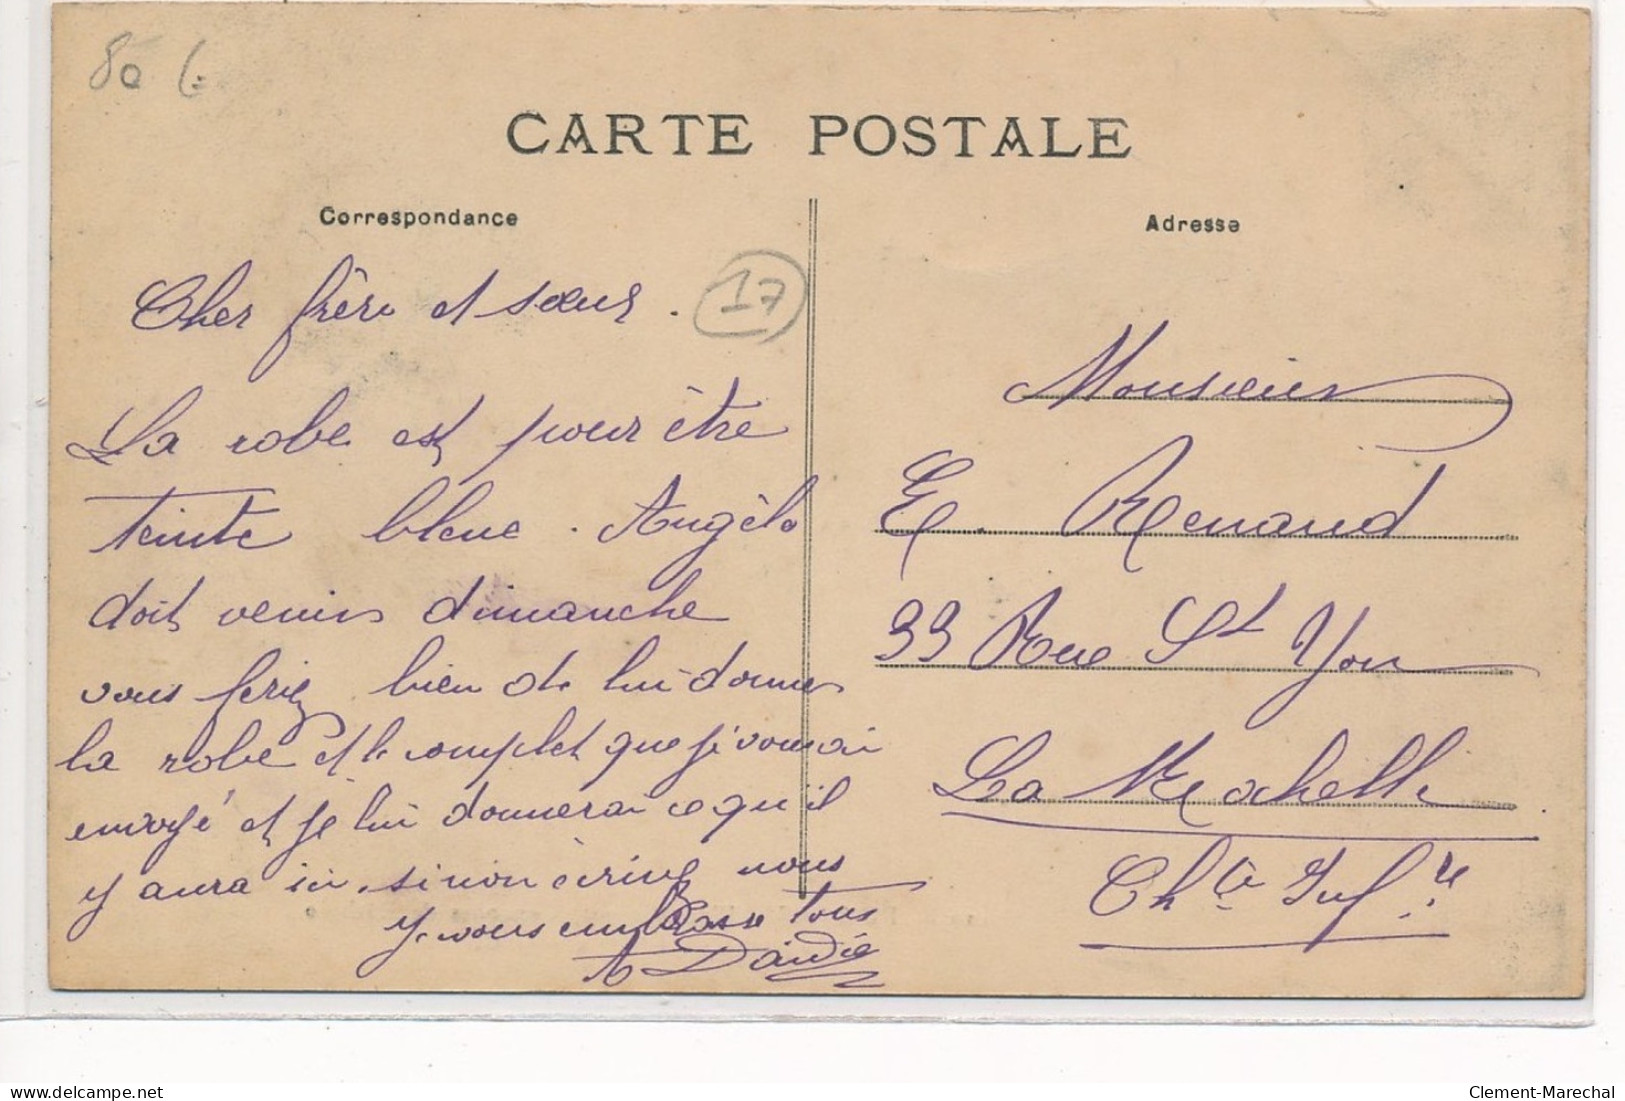 80 €
CARTE POSTALE
Correspondance
Adresse
Cher frère et sœur.
17
La robe est pour être
teinte bleue. Angèle
doit venir dimanche
vous feriez bien de lui donner
la robe et le complet que je vous ai
envoyé et je lui donnerai ce qu'il
y aura ici. sinon écrivez nous
Je vous embrasse tous
Monsieur
E. Renaud
33 Rue St Yon
La Rochelle
Chte Infre
delcampe.net
Clement-Marechal